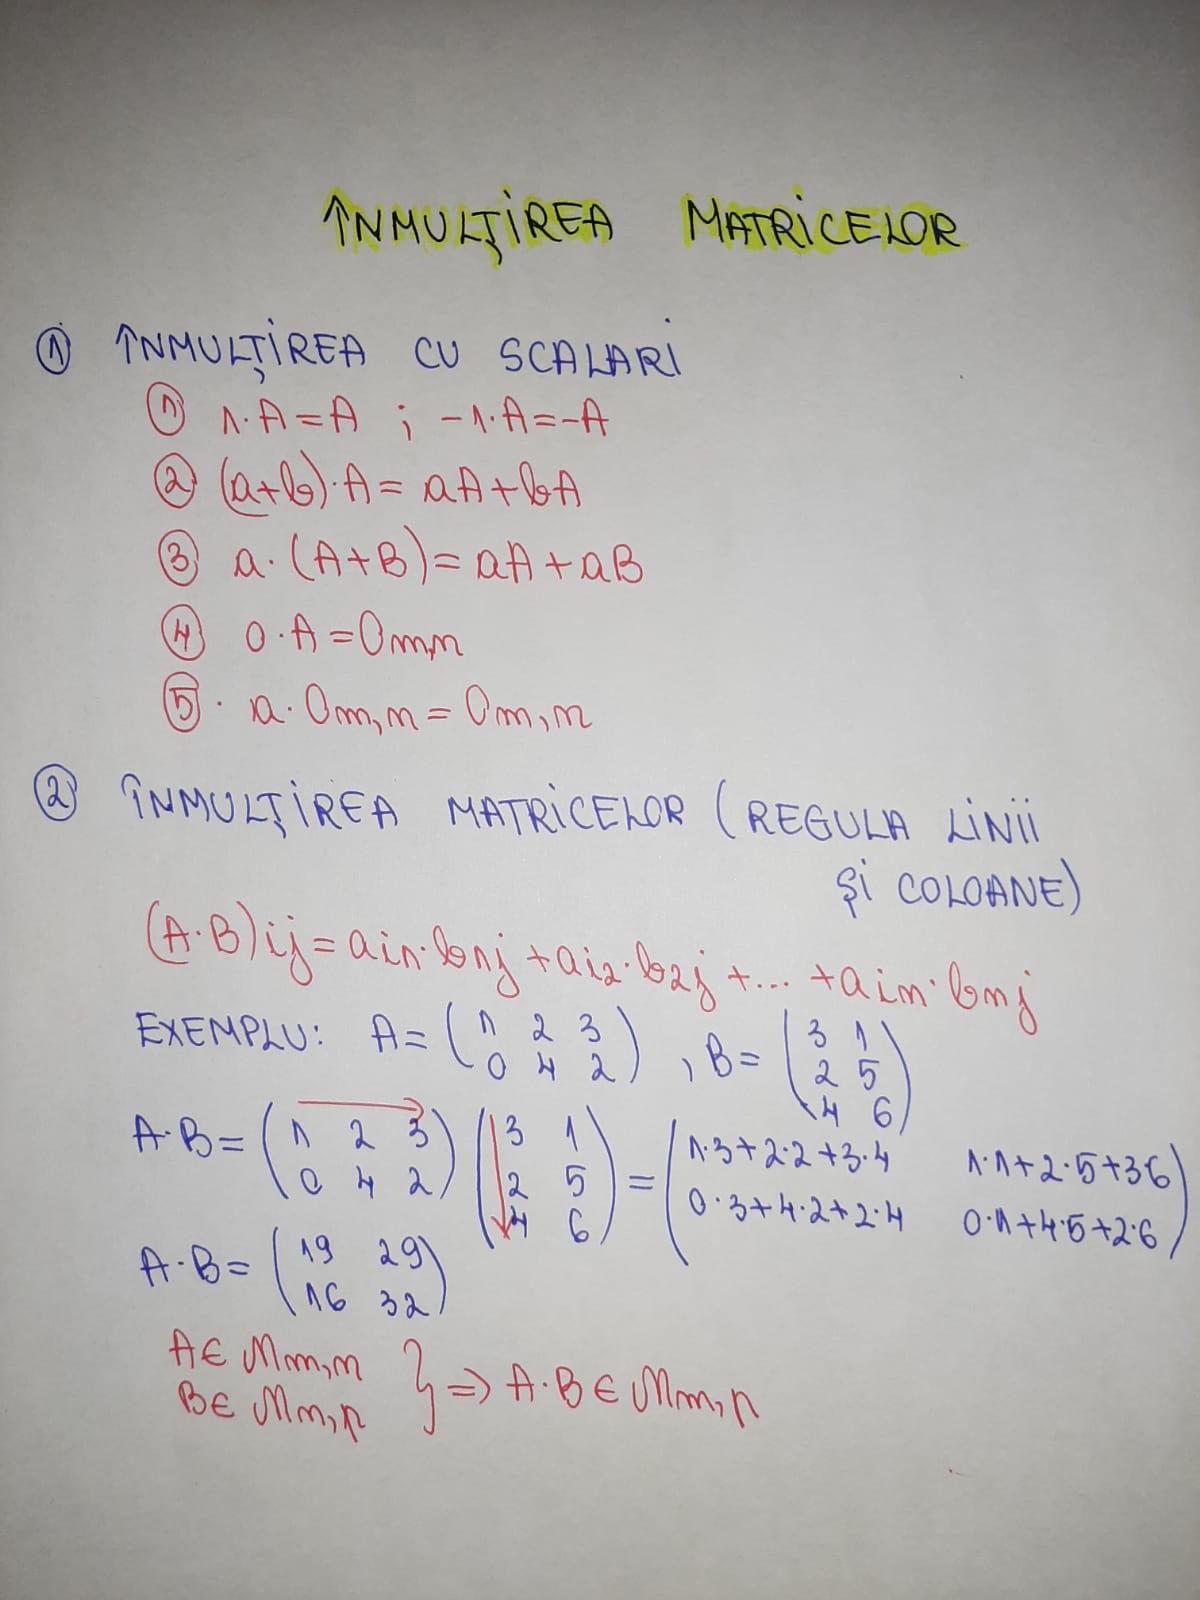 ÎNMULȚIREA MATRICELOR
① ÎNMULȚIREA CU SCALARI
① 1·A=A ; -1·A=-A
② (a+b)·A= aA+bA
③ a·(A+B)= aA+aB
④ 0·A=Om,n
⑤ · a·Om,n=Om,n
② ÎNMULȚIREA MATRICELOR (REGULA LINII
ȘI COLOANE)
(A·B)ij=ai1·b1j+ai2·b2j+...+ain·bnj
EXEMPLU: A=(1 2 3 / 0 4 2), B=(3 1 / 2 5 / 4 6)
A·B=(1 2 3 / 0 4 2)(3 1 / 2 5 / 4 6)=(1·3+2·2+3·4 1·1+2·5+36 / 0·3+4·2+2·4 0·1+4·5+2·6)
A·B=(19 29 / 16 32)
A∈Mm,n
B∈Mn,p } => A·B∈Mm,p